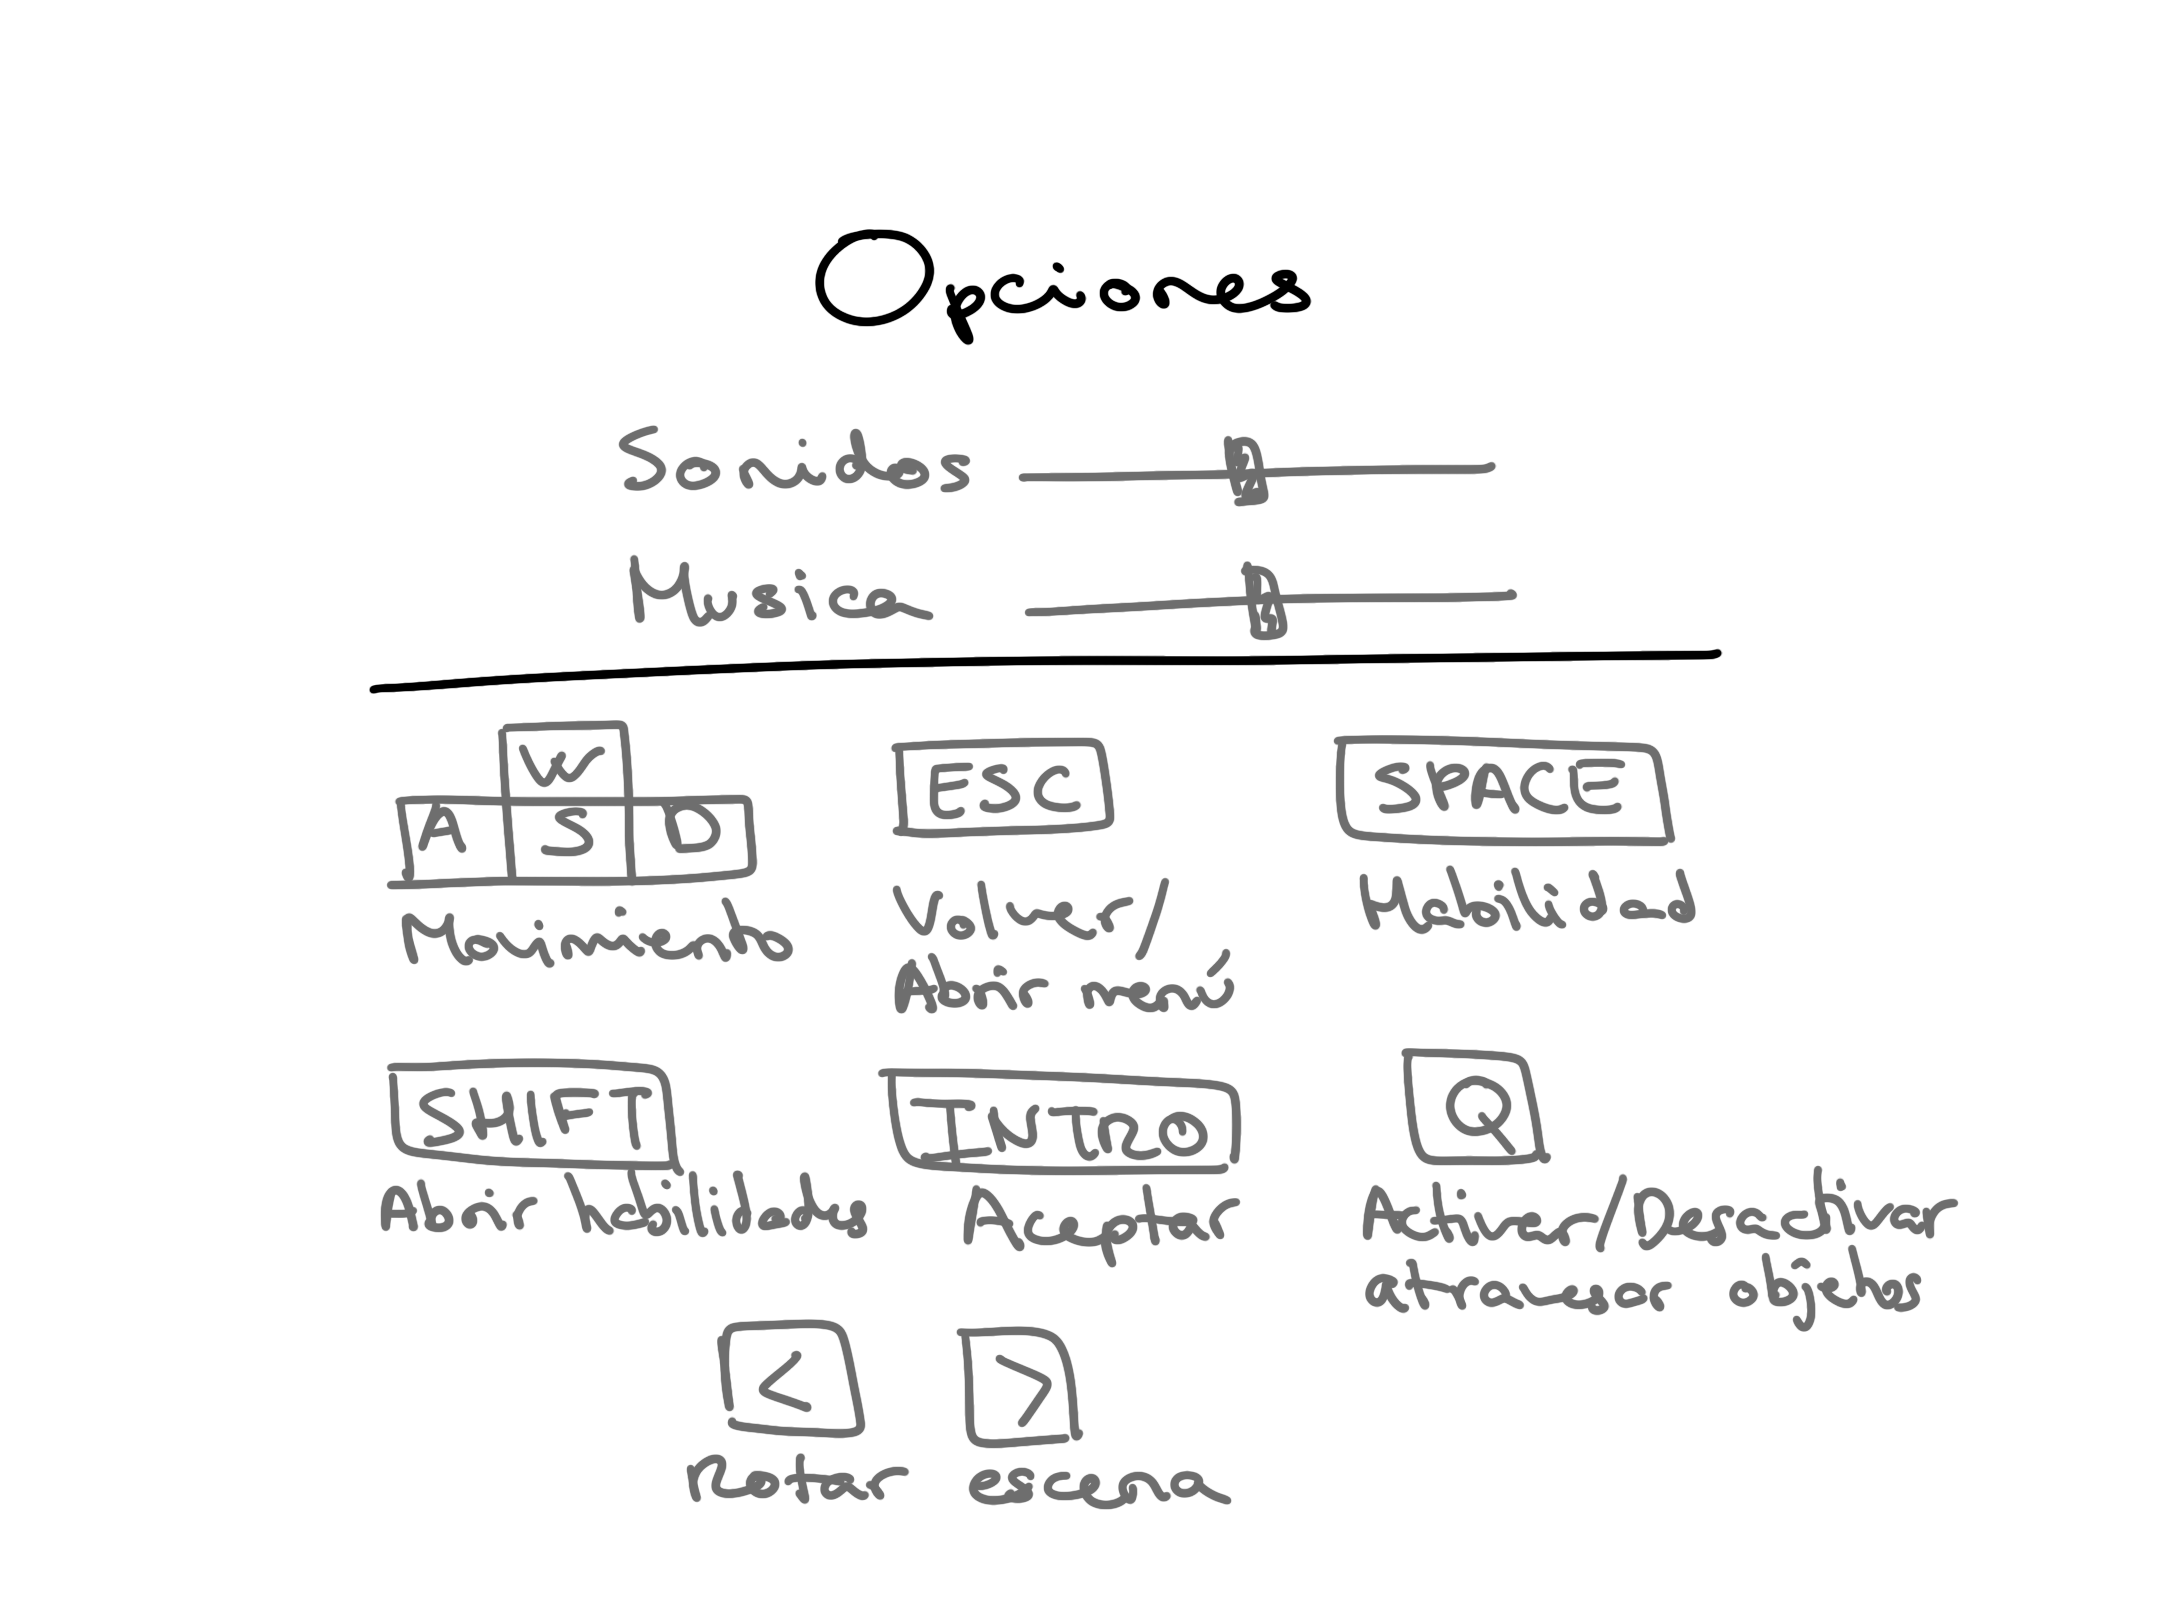 Opciones
Sonidos
Musica
W
A S D
ESC
SPACE
Movimiento
Volver/
Abrir menú
Habilidad
SHIFT
INTRO
Q
Abrir habilidades
Aceptar
Activar/Desactivar
atravesar objetos
< >
Rotar escena